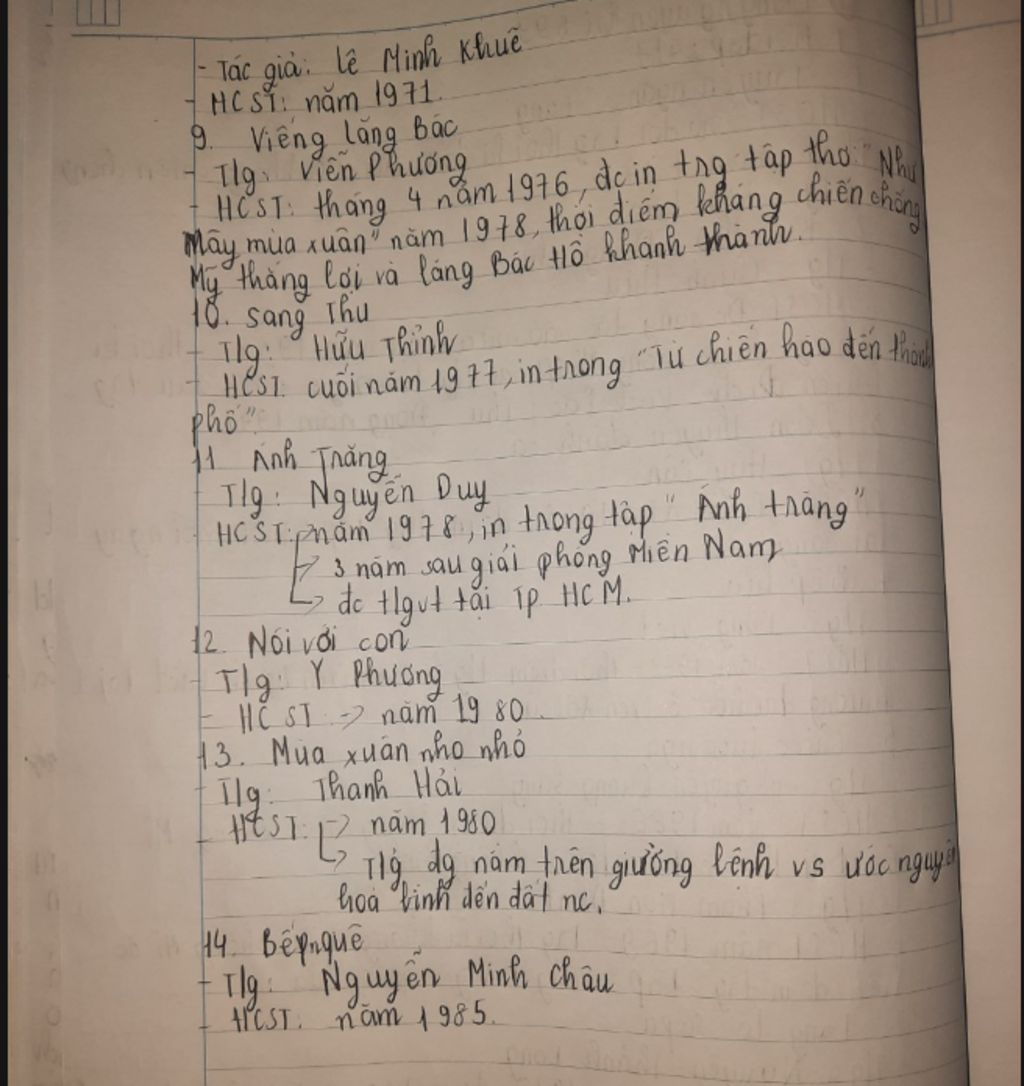 - Tác giả: Lê Minh Khuê
- HCST: năm 1971.
9. Viếng lăng Bác
- T/g: Viễn Phương
- HCST: tháng 4 năm 1976, đc in trg tập thơ "Như
Mây mùa xuân" năm 1978, thời điểm kháng chiến chống
Mỹ thắng lợi và lăng Bác Hồ khánh thành.
10. Sang Thu
- T/g: Hữu Thỉnh
- HCST: cuối năm 1977, in trong "Từ chiến hào đến thành
phố"
11 Ánh Trăng
- T/g: Nguyễn Duy
HCST: năm 1978, in trong tập "Ánh trăng"
-> 3 năm sau giải phóng Miền Nam
-> đc t/gvt tại Tp HCM.
12. Nói với con
- T/g: Y Phương
- HCST -> năm 1980.
13. Mùa xuân nho nhỏ
- T/g: Thanh Hải
- HCST: -> năm 1980
-> T/g đg nằm trên giường bệnh vs ước nguyện
hoà bình đến đất nc.
14. Bến quê
- T/g: Nguyễn Minh Châu
- HCST: năm 1985.